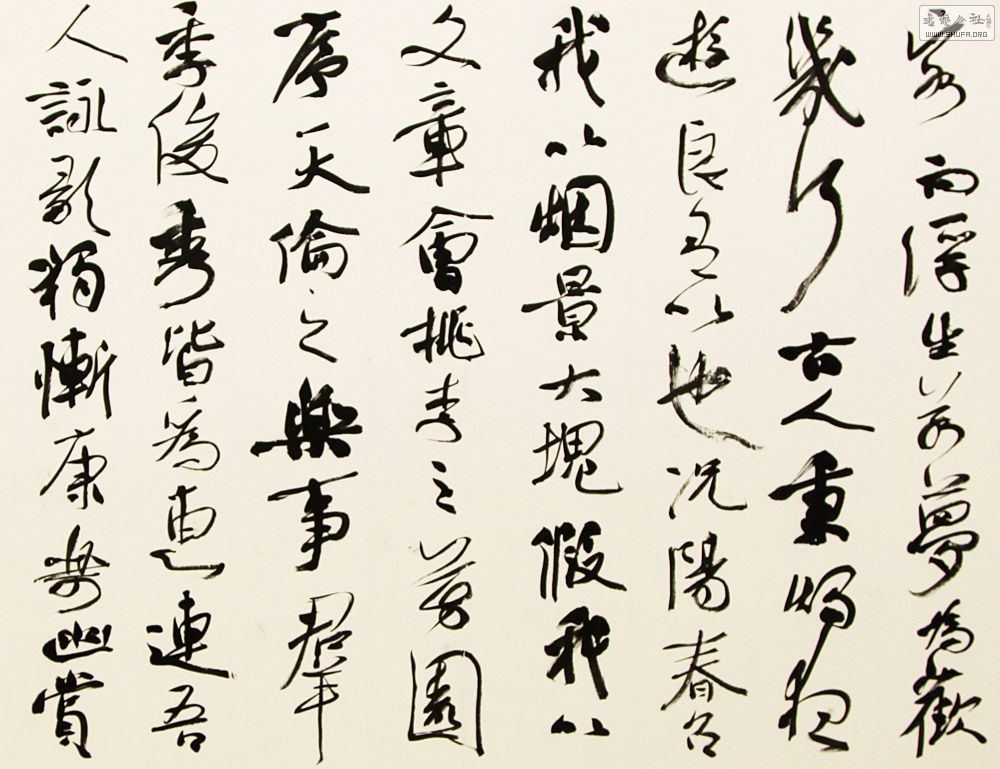 客而浮生若夢為歡
幾何古人秉燭夜
遊良有以也況陽春召
我以烟景大塊假我以
文章會桃李之芳園
序天倫之樂事羣
季俊秀皆為惠連吾
人詠歌獨慚康樂幽賞
WWW.SHUFA.ORG